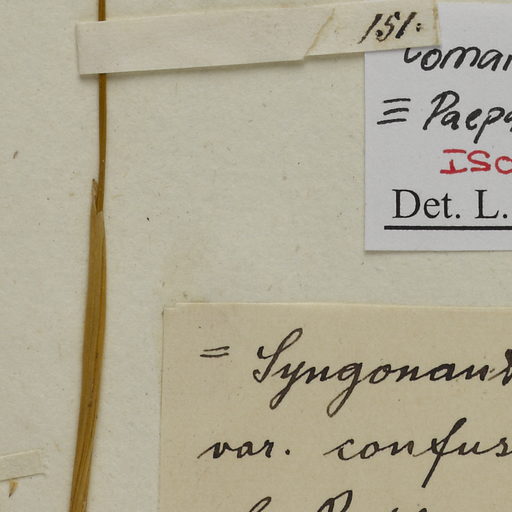 151.
≡ Paep
ISO
Det. L.
= Syngonant
var. confus